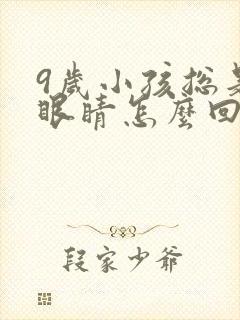 9歲小孩總是
眼睛怎麼回
段家少爺